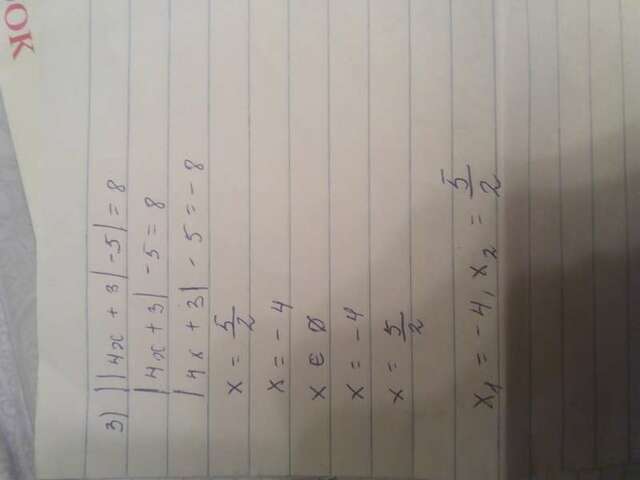 ЮК
3) ||4x + 3| - 5| = 8
|4x + 3| - 5 = 8
|4x + 3| - 5 = - 8
x = 5/2
x = - 4
x ∈ ∅
x = - 4
x = 5/2
x₁ = - 4, x₂ = 5/2